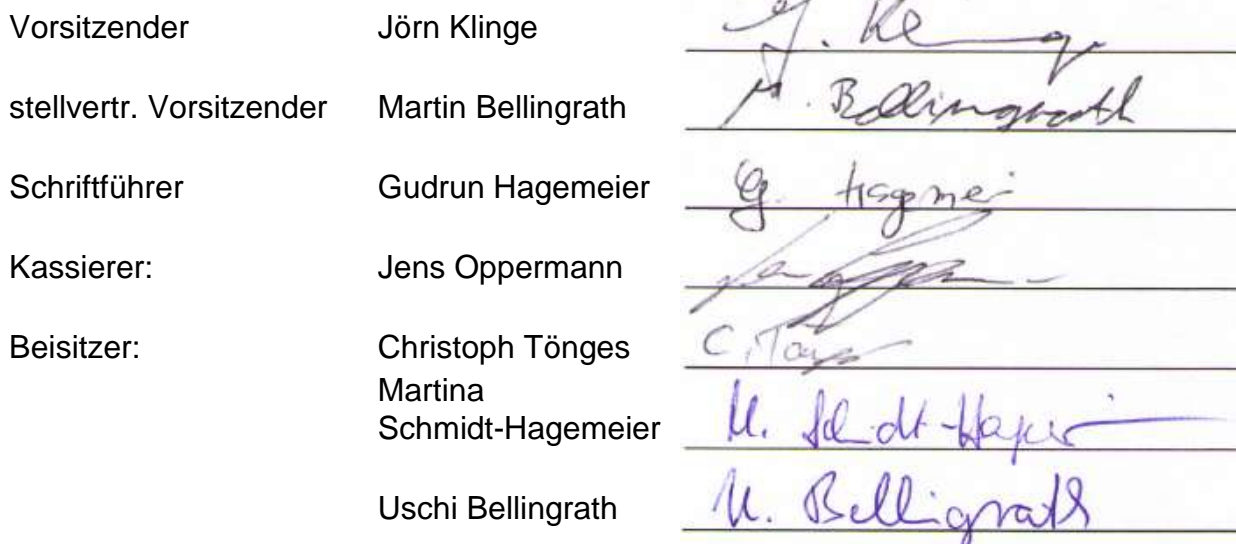 Vorsitzender Jörn Klinge J. Klinge
stellvertr. Vorsitzender Martin Bellingrath M. Bellingrath
Schriftführer Gudrun Hagemeier G. Hagemei
Kassierer: Jens Oppermann
Beisitzer: Christoph Tönges C. Tönges
Martina
Schmidt-Hagemeier M. Schmidt-Hagemeier
Uschi Bellingrath U. Bellingrath